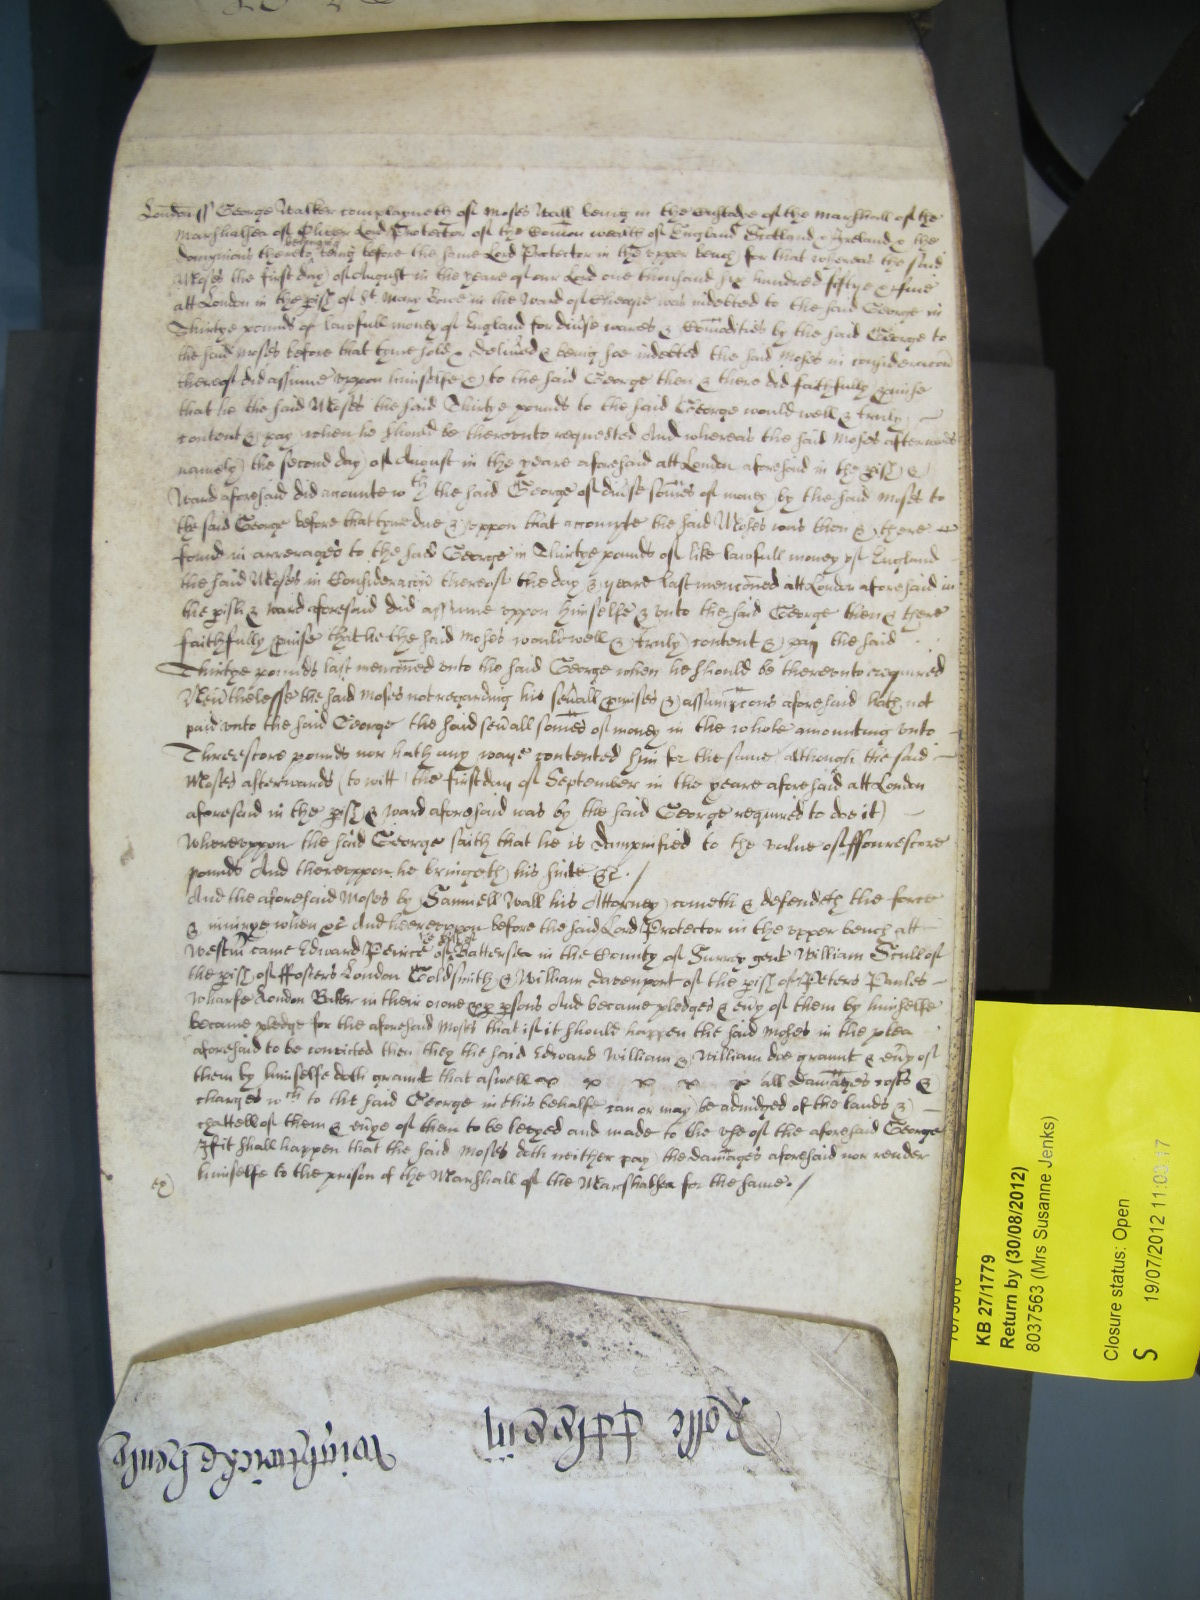 London ss George Walker complayneth of Moses Wall being in the Custodye of the Marshall of the
Marshalsea of Oliver Lord Protector of the Comon wealth of England Scotland & Ireland & the
dominions thereto belonging being before the same Lord Protector in the upper bench for that whereas the said
Moses the first day of August in the yeare of our Lord one thousand six hundred fiftye & five
att London in the pish of St Mary Bowe in the Ward of Cheape was indebted to the said George in
Thirtye pounds of lawfull money of England for diuse wares & Comodities by the said George to
the said Moses before that tyme sold & deliued & being soe indebted the said Moses in consideracon
thereof did assume uppon himselfe & to the said George then & there did faithfully pmise
that he the said Moses the said Thirtye pounds to the said George would well & truly
content & pay when he should be thereunto requested And whereas the said Moses afterwards
namely the second day of August in the yeare aforesaid att London aforesaid in the pish &
Ward aforesaid did accounte wth the said George of diuse somes of money by the said Moses to
the said George before that tyme due & uppon that accompte the said Moses was then & there
found in arrerages to the said George in Thirtye pounds of like lawfull money of England
the said Moses in Consideracon thereof the day & yeare last menconed att London aforesaid in
the pish & ward aforesaid did assume uppon himselfe & unto the said George then & there
faithfully pmise that he the said Moses would well & truly content & pay the said
Thirtye pounds last menconed unto the said George when he should be thereunto required
Neutheless the said Moses not regarding his seuall pmises & assumpcons aforesaid hath not
paid unto the said George the said seuall somes of money in the whole amounting unto
Threescore pounds nor hath any waye contented him for the same although the said
Moses afterwards (to witt) the first day of September in the yeare aforesaid att London
aforesaid in the pish & ward aforesaid was by the said George required to doe it)
Whereuppon the said George saith that he is dampnified to the value of ffourescore
pounds And thereuppon he bringeth his suite &c.
And the aforesaid Moses by Samuell Wall his Attorney cometh & defendeth the force
& iniurye when &c And hereuppon before the said Lord Protector in the upper bench att
Westm came Edward Peirce of the pish of Battersea in the County of Surrey gent William Scull of
the pish of ffosters London Goldsmith & William Davenport of the pish of Peters Paules
wharfe London Baker in their owne pp psons And became pledges & euy of them by himselfe
became pledge for the aforesaid Moses that if it should happen the said Moses in the plea
aforesaid to be convicted then they the said Edward William & William doe graunt & euy of
them by himselfe doth graunt that aswell x x x x x all damages costs &
charges wch to the said George in this behalfe can or may be adiudged of the lands &
chattells of them & euye of them to be levyed and made to the use of the aforesaid George
If it shall happen that the said Moses doth neither pay the damages aforesaid nor render
himselfe to the prison of the Marshall of the Marshalsea for the same.
ex)
Rolle
wightwicke
KB 27/1779
Return by (30/08/2012)
8037563 (Mrs Susanne Jenks)
Closure status: Open
S 19/07/2012 11:03:17